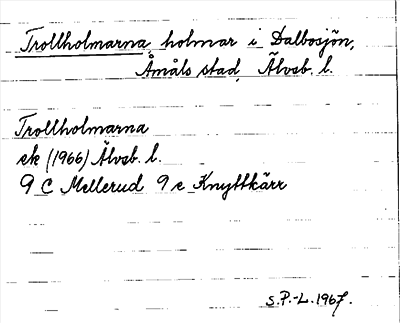 Trollholmarna, holmar i Dalbosjön,
Åmåls stad, Älvsb. l.
Trollholmarna
ek (1966) Älvsb. l.
9 C Mellerud 9 e Knyttkärr
S.P.-L. 1967.